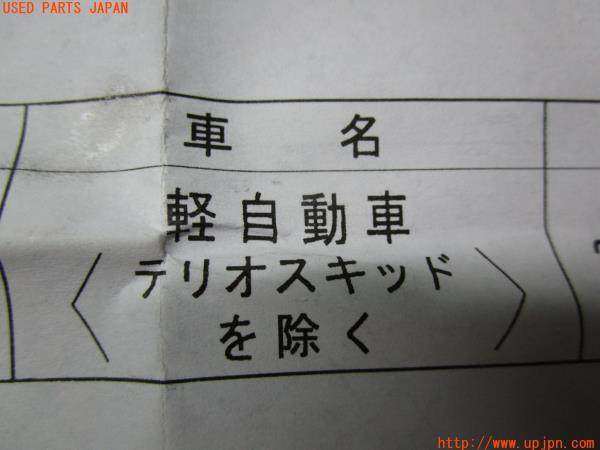 USED PARTS JAPAN
車 名
軽自動車
〈テリオスキッド
を除く〉
http://www.upjpn.com